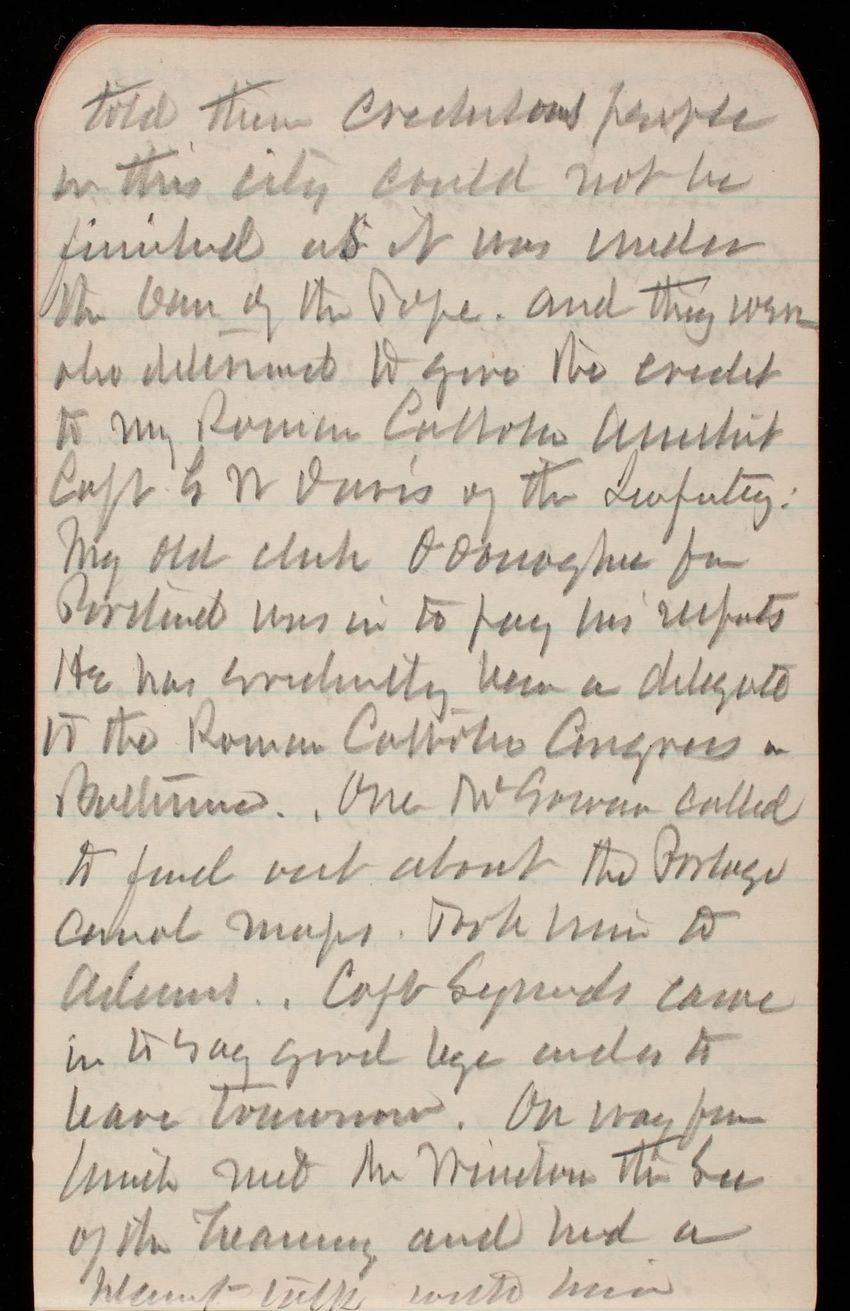 told them credulous people
in this city could not be
finished as it was under
the ban of the Pope. and they were
also determined to give the credit
to my Roman Catholic Assistant
Capt G W Davis of the Infantry.
My old clerk O Donoghue from
Portland was in to pay his respects
He has evidently been a delegate
to the Roman Catholic Congress in
Baltimore.. One McGowan called
to find out about the Portage
canal maps. Took him to
Adams.. Capt Symonds came
in to say good bye under to
leave tomorrow. On way from
lunch met Mr Windom the Sec
of the Treasury and had a
pleasant talk with him